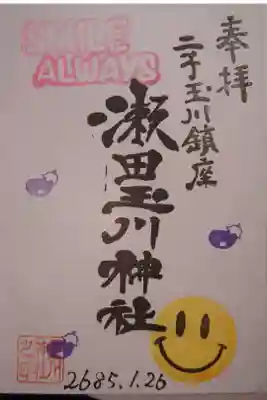 SMILE
ALWAYS
奉拝
二子玉川鎮座
瀬田玉川神社
2685.1.26